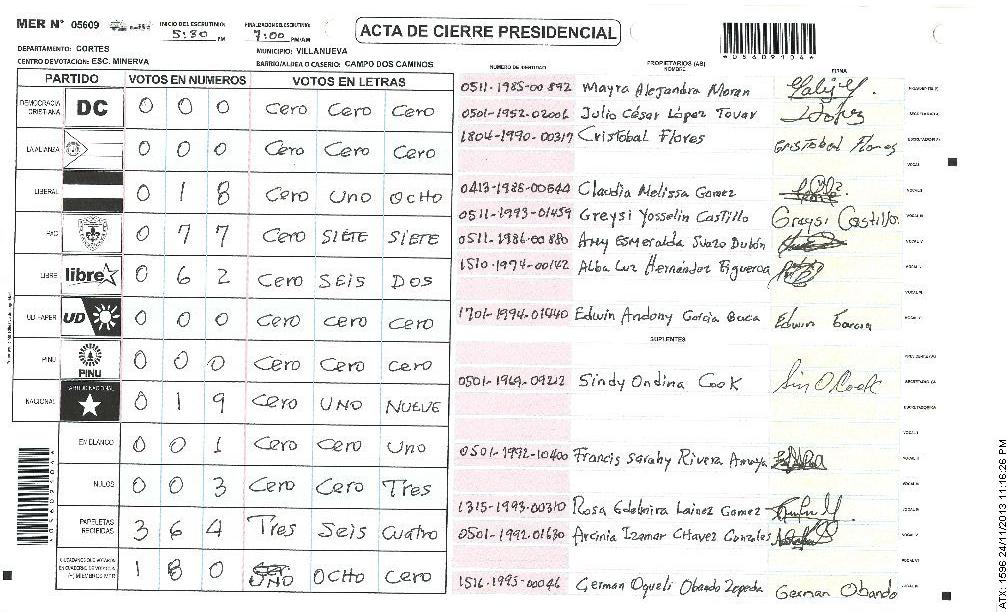 MER N° 05609
INICIO DEL ESCRUTINIO: 5:30 PM
FINALIZACION DEL ESCRUTINIO: 7:00 PM/AM
ACTA DE CIERRE PRESIDENCIAL
DEPARTAMENTO: CORTES
MUNICIPIO: VILLANUEVA
CENTRO DE VOTACION: ESC. MINERVA
BARRIO/ALDEA O CASERIO: CAMPO DOS CAMINOS
PARTIDO VOTOS EN NUMEROS VOTOS EN LETRAS
DEMOCRACIA CRISTIANA DC 0 0 0 Cero Cero Cero
LA ALIANZA 0 0 0 Cero Cero Cero
LIBERAL 0 1 8 Cero Uno OCHO
PAC 0 7 7 Cero SIETE SIETE
LIBRE libre 0 6 2 Cero SEIS DOS
UD-FAPER UD 0 0 0 Cero Cero Cero
PINU PINU 0 0 0 Cero Cero Cero
NACIONAL PARTIDO NACIONAL 0 1 9 Cero UNO NUEVE
EN BLANCO 0 0 1 Cero Cero Uno
NULOS 0 0 3 Cero Cero Tres
PAPELETAS RECIBIDAS 3 6 4 Tres Seis Cuatro
CIUDADANOS QUE VOTARON EN CUADERNO DE VOTACION (+) MIEMBROS MER 1 8 0 UNO OCHO Cero
NUMERO DE IDENTIDAD PROPIETARIOS (AS) NOMBRE FIRMA
0511-1985-00892 Mayra Alejandra Moran
0501-1952-02006 Julio César López Tovar López
1804-1990-00317 Cristobal Flores Cristobal Flores
0413-1985-00644 Claudia Melissa Gomez
0511-1993-01459 Greysi Yosselin Castillo Greysi Castillo.
0511-1986-00880 Amy Esmeralda Suazo Dubón
1510-1974-00142 Alba Luz Hernández Figueroa
1701-1994-01440 Edwin Andony Garcia Baca Edwin Garcia
SUPLENTES
0501-1969-09212 Sindy Ondina Cook Sin O Cook
0501-1992-10400 Francis Sarahy Rivera Amaya
1315-1993-00310 Rosa Edelmira Lainez Gomez
0501-1992-01630 Arcinia Izamar Chavez Gonzales
1516-1995-00046 German Oqueli Obando Zepeda German Obando
CATX-1596 24/11/2013 11:16:26 PM